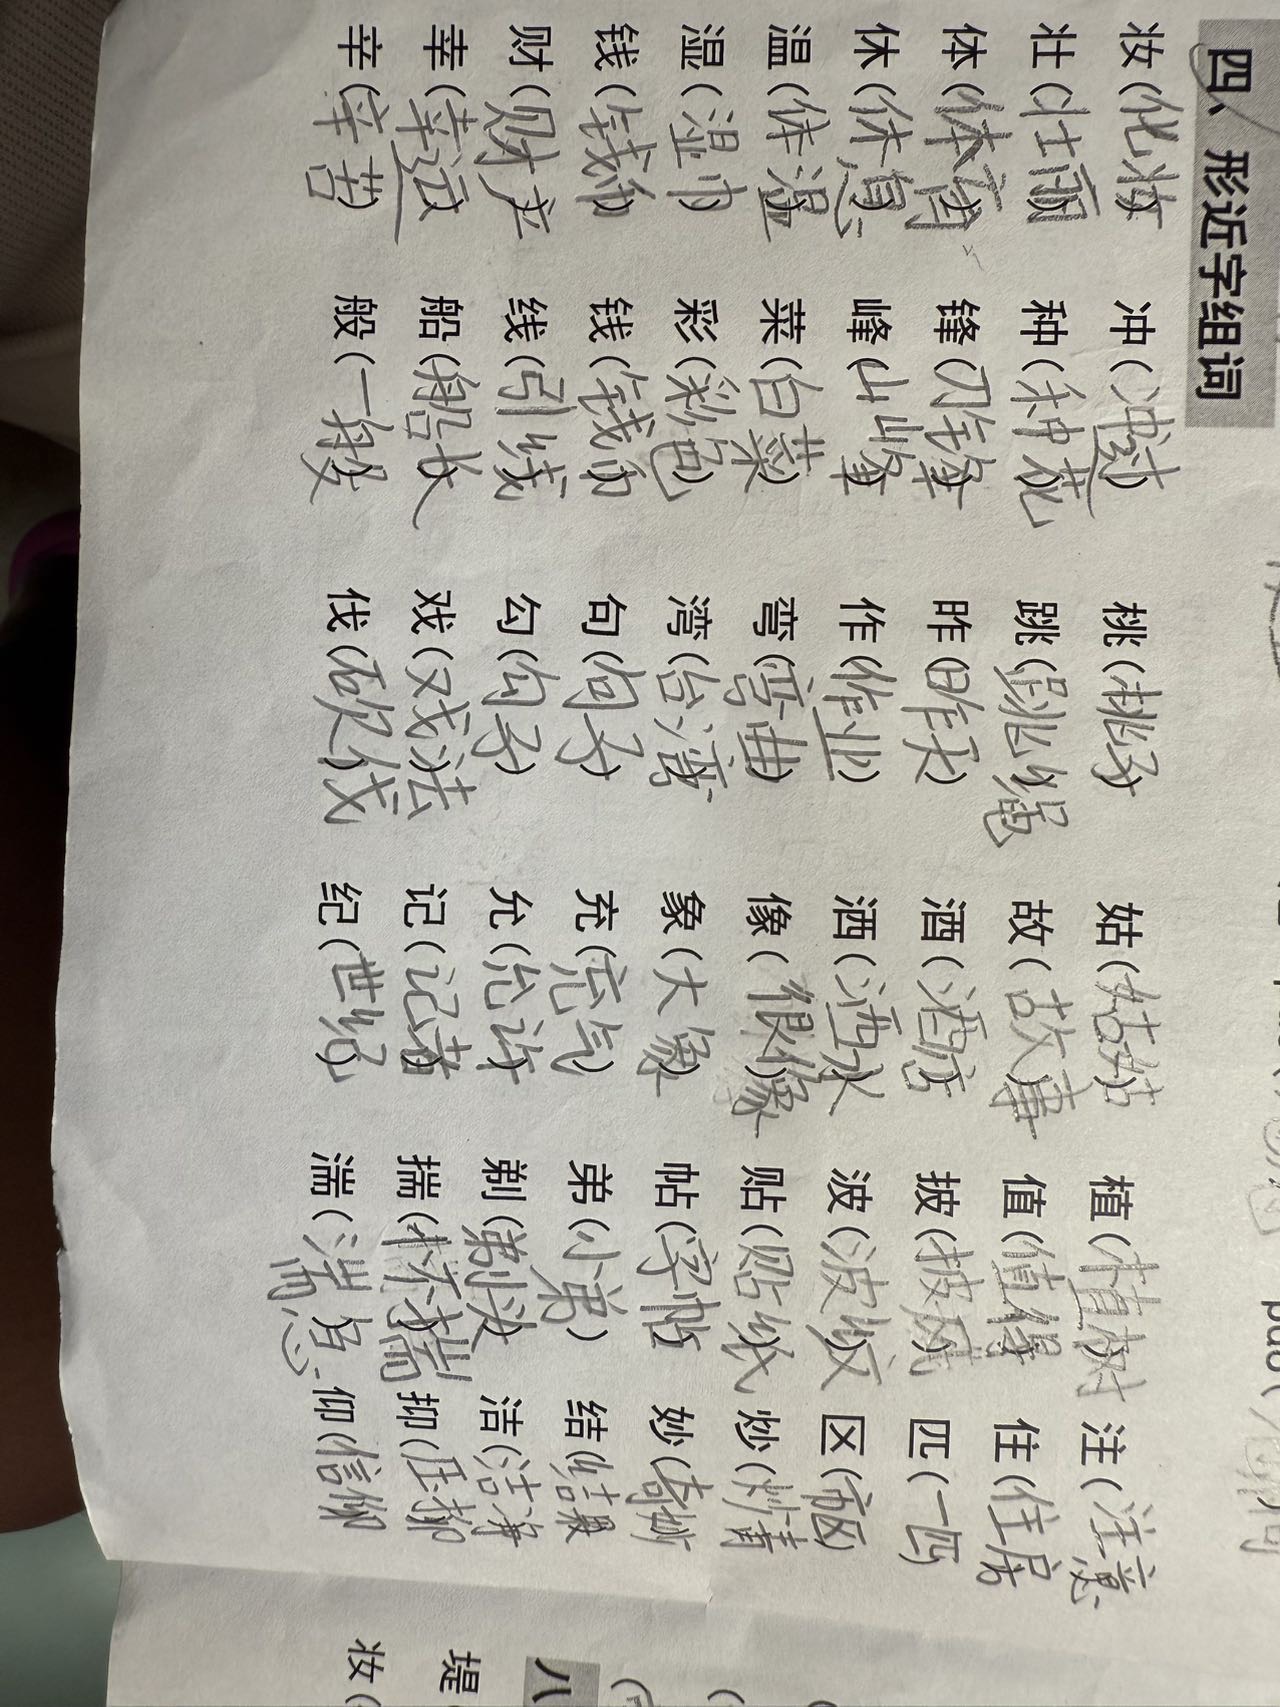 四、形近字组词
妆(化妆) 冲(冲过) 桃(桃子) 姑(姑姑) 植(植树) 注(注意)
壮(壮丽) 种(种花) 跳(跳绳) 故(故事) 值(值得) 住(住居)
体(体育) 锋(刀锋) 昨(昨天) 酒(酒店) 披(披风) 匹(一匹)
休(休息) 峰(山峰) 作(作业) 洒(洒水) 波(波纹) 区(市区)
温(体温) 菜(白菜) 弯(弯曲) 像(很像) 贴(贴纸) 炒(炒青)
湿(湿巾) 彩(彩色) 湾(台湾) 象(大象) 帖(字帖) 妙(奇妙)
钱(钱币) 钱(钱币) 句(句子) 充(充气) 弟(小弟) 结(结果)
财(财产) 线(引线) 勾(勾子) 允(允许) 剃(剃头) 洁(洁净)
幸(幸运) 船(船长) 戏(戏法) 记(记者) 揣(怀揣) 抑(压抑)
辛(辛苦) 般(一般) 伐(砍伐) 纪(世纪) 湍(湍急) 仰(信仰)
八
堤(
妆(